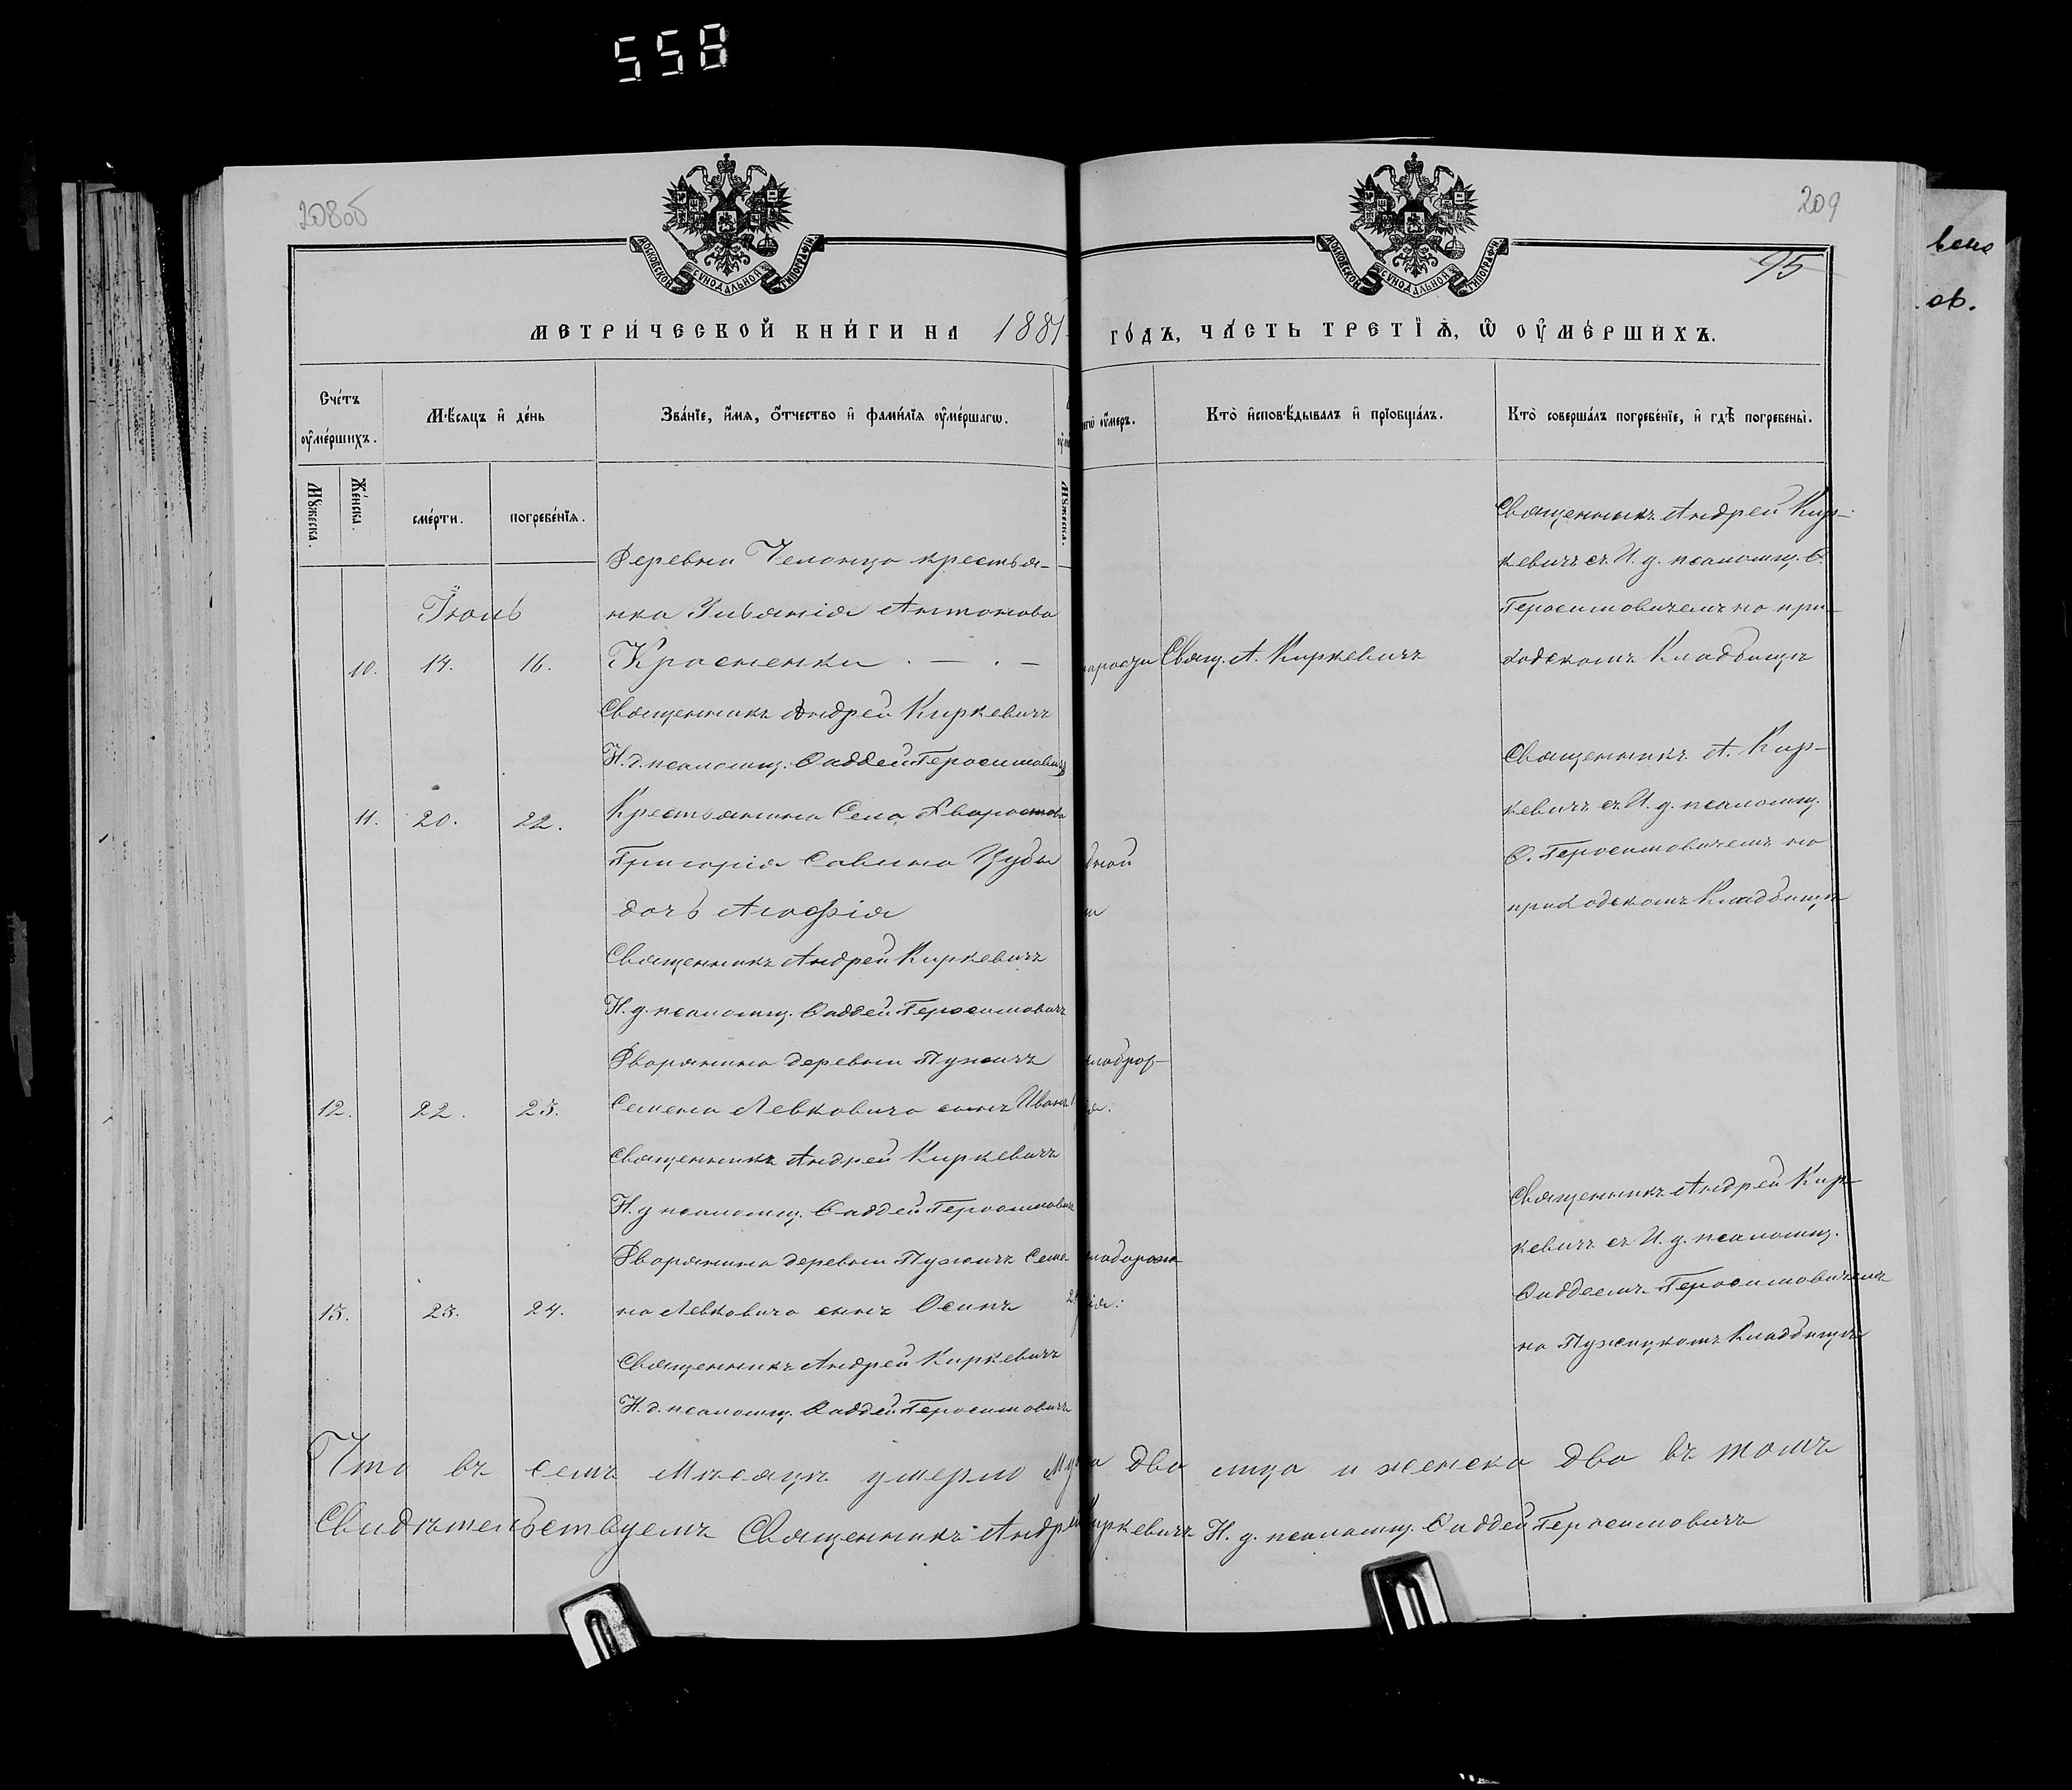 558
208об
209
95
МОСКОВСКОЙ СѴНОДАЛЬНОЙ ТИПОГРАФІИ
МОСКОВСКОЙ СѴНОДАЛЬНОЙ ТИПОГРАФІИ
МЕТРИ́ЧЕСКОЙ КНИ́ГИ НА 1881 ГО́ДЪ, ЧА́СТЬ ТРЕТЇѦ, Ѡ ОУМЕ́РШИХЪ.
Сче́тъ оуме́ршихъ.
Мѣ́сяцъ и де́нь
Зва́нїе, и́мя, ѻ́тчество и фами́лїя оуме́ршагѡ.
оу́меръ.
Кто̀ исповѣ́дывалъ и прїобща́лъ.
Кто̀ соверша́лъ погребе́нїе, и гдѣ̀ погребены̀.
Мꙋжеска.
Же́нска.
сме́рти.
погребе́нїя.
Мꙋжеска.
Деревни Челонца крестья-
Іюль
нка Ульянія Антонова
10. 14. 16. Красненки . — . —
Свящ. А. Киркевичъ
Священникъ Андрей Кир-
кевичъ съ И. д. псаломщ. Ѳ.
Герасимовичемъ на при-
ходскомъ Кладбищѣ
Священникъ Андрей Киркевичъ
И. д. псаломщ. Ѳаддей Герасимовичъ
11. 20. 22. Крестьянина Села Хворостова
Григорія Савина Цубы
дочь Агафія
Священникъ А. Кир-
кевичъ съ И. д. псаломщ.
Ѳ. Герасимовичемъ на
приходскомъ Кладбищѣ
Священникъ Андрей Киркевичъ
И. д. псаломщ. Ѳаддей Герасимовичъ
Дворянина деревни Пужичъ
12. 22. 23. Семена Левковича сынъ Иванъ
Священникъ Андрей Киркевичъ
И. д. псаломщ. Ѳаддей Герасимовичъ
Дворянина деревни Пужичъ Семе-
13. 23. 24. на Левковича сынъ Осипъ
Священникъ Андрей Кир-
кевичъ съ И. д. псаломщ.
Ѳаддеемъ Герасимовичемъ
на Пужицкомъ Кладбищѣ
Священникъ Андрей Киркевичъ
И. д. псаломщ. Ѳаддей Герасимовичъ
Что въ семъ мѣсяцѣ умерло два лица и женска два въ томъ
Свидѣтельствуемъ Священникъ Андрей Киркевичъ И. д. псаломщ. Ѳаддей Герасимовичъ